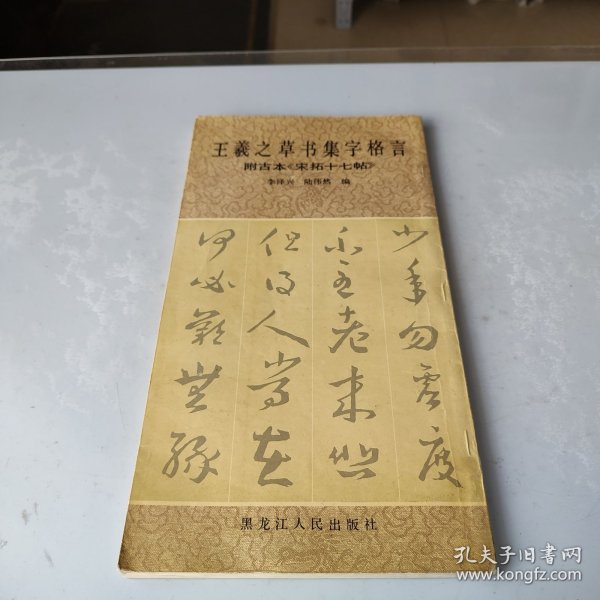 王羲之草书集字格言
附古本《宋拓十七帖》
李泽兴 陆伟然 编
少年勿虚度
不至老来悲
但得人常在
何必叹无缘
黑龙江人民出版社
孔夫子旧书网
www.kongfz.com